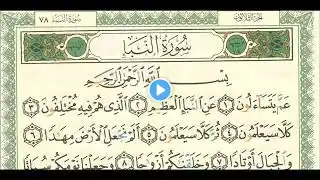 الجزء الثلاثون سورة النبإ ٧٨
سُورَةُ النَّبَإِ
بِسْمِ اللَّهِ الرَّحْمَٰنِ الرَّحِيمِ
عَمَّ يَتَسَاءَلُونَ ١ عَنِ النَّبَإِ الْعَظِيمِ ٢ الَّذِي هُمْ فِيهِ مُخْتَلِفُونَ ٣
كَلَّا سَيَعْلَمُونَ ٤ ثُمَّ كَلَّا سَيَعْلَمُونَ ٥ أَلَمْ نَجْعَلِ الْأَرْضَ مِهَادًا ٦
وَالْجِبَالَ أَوْتَادًا ٧ وَخَلَقْنَاكُمْ أَزْوَاجًا ٨ وَجَعَلْنَا نَوْمَكُمْ سُبَاتًا